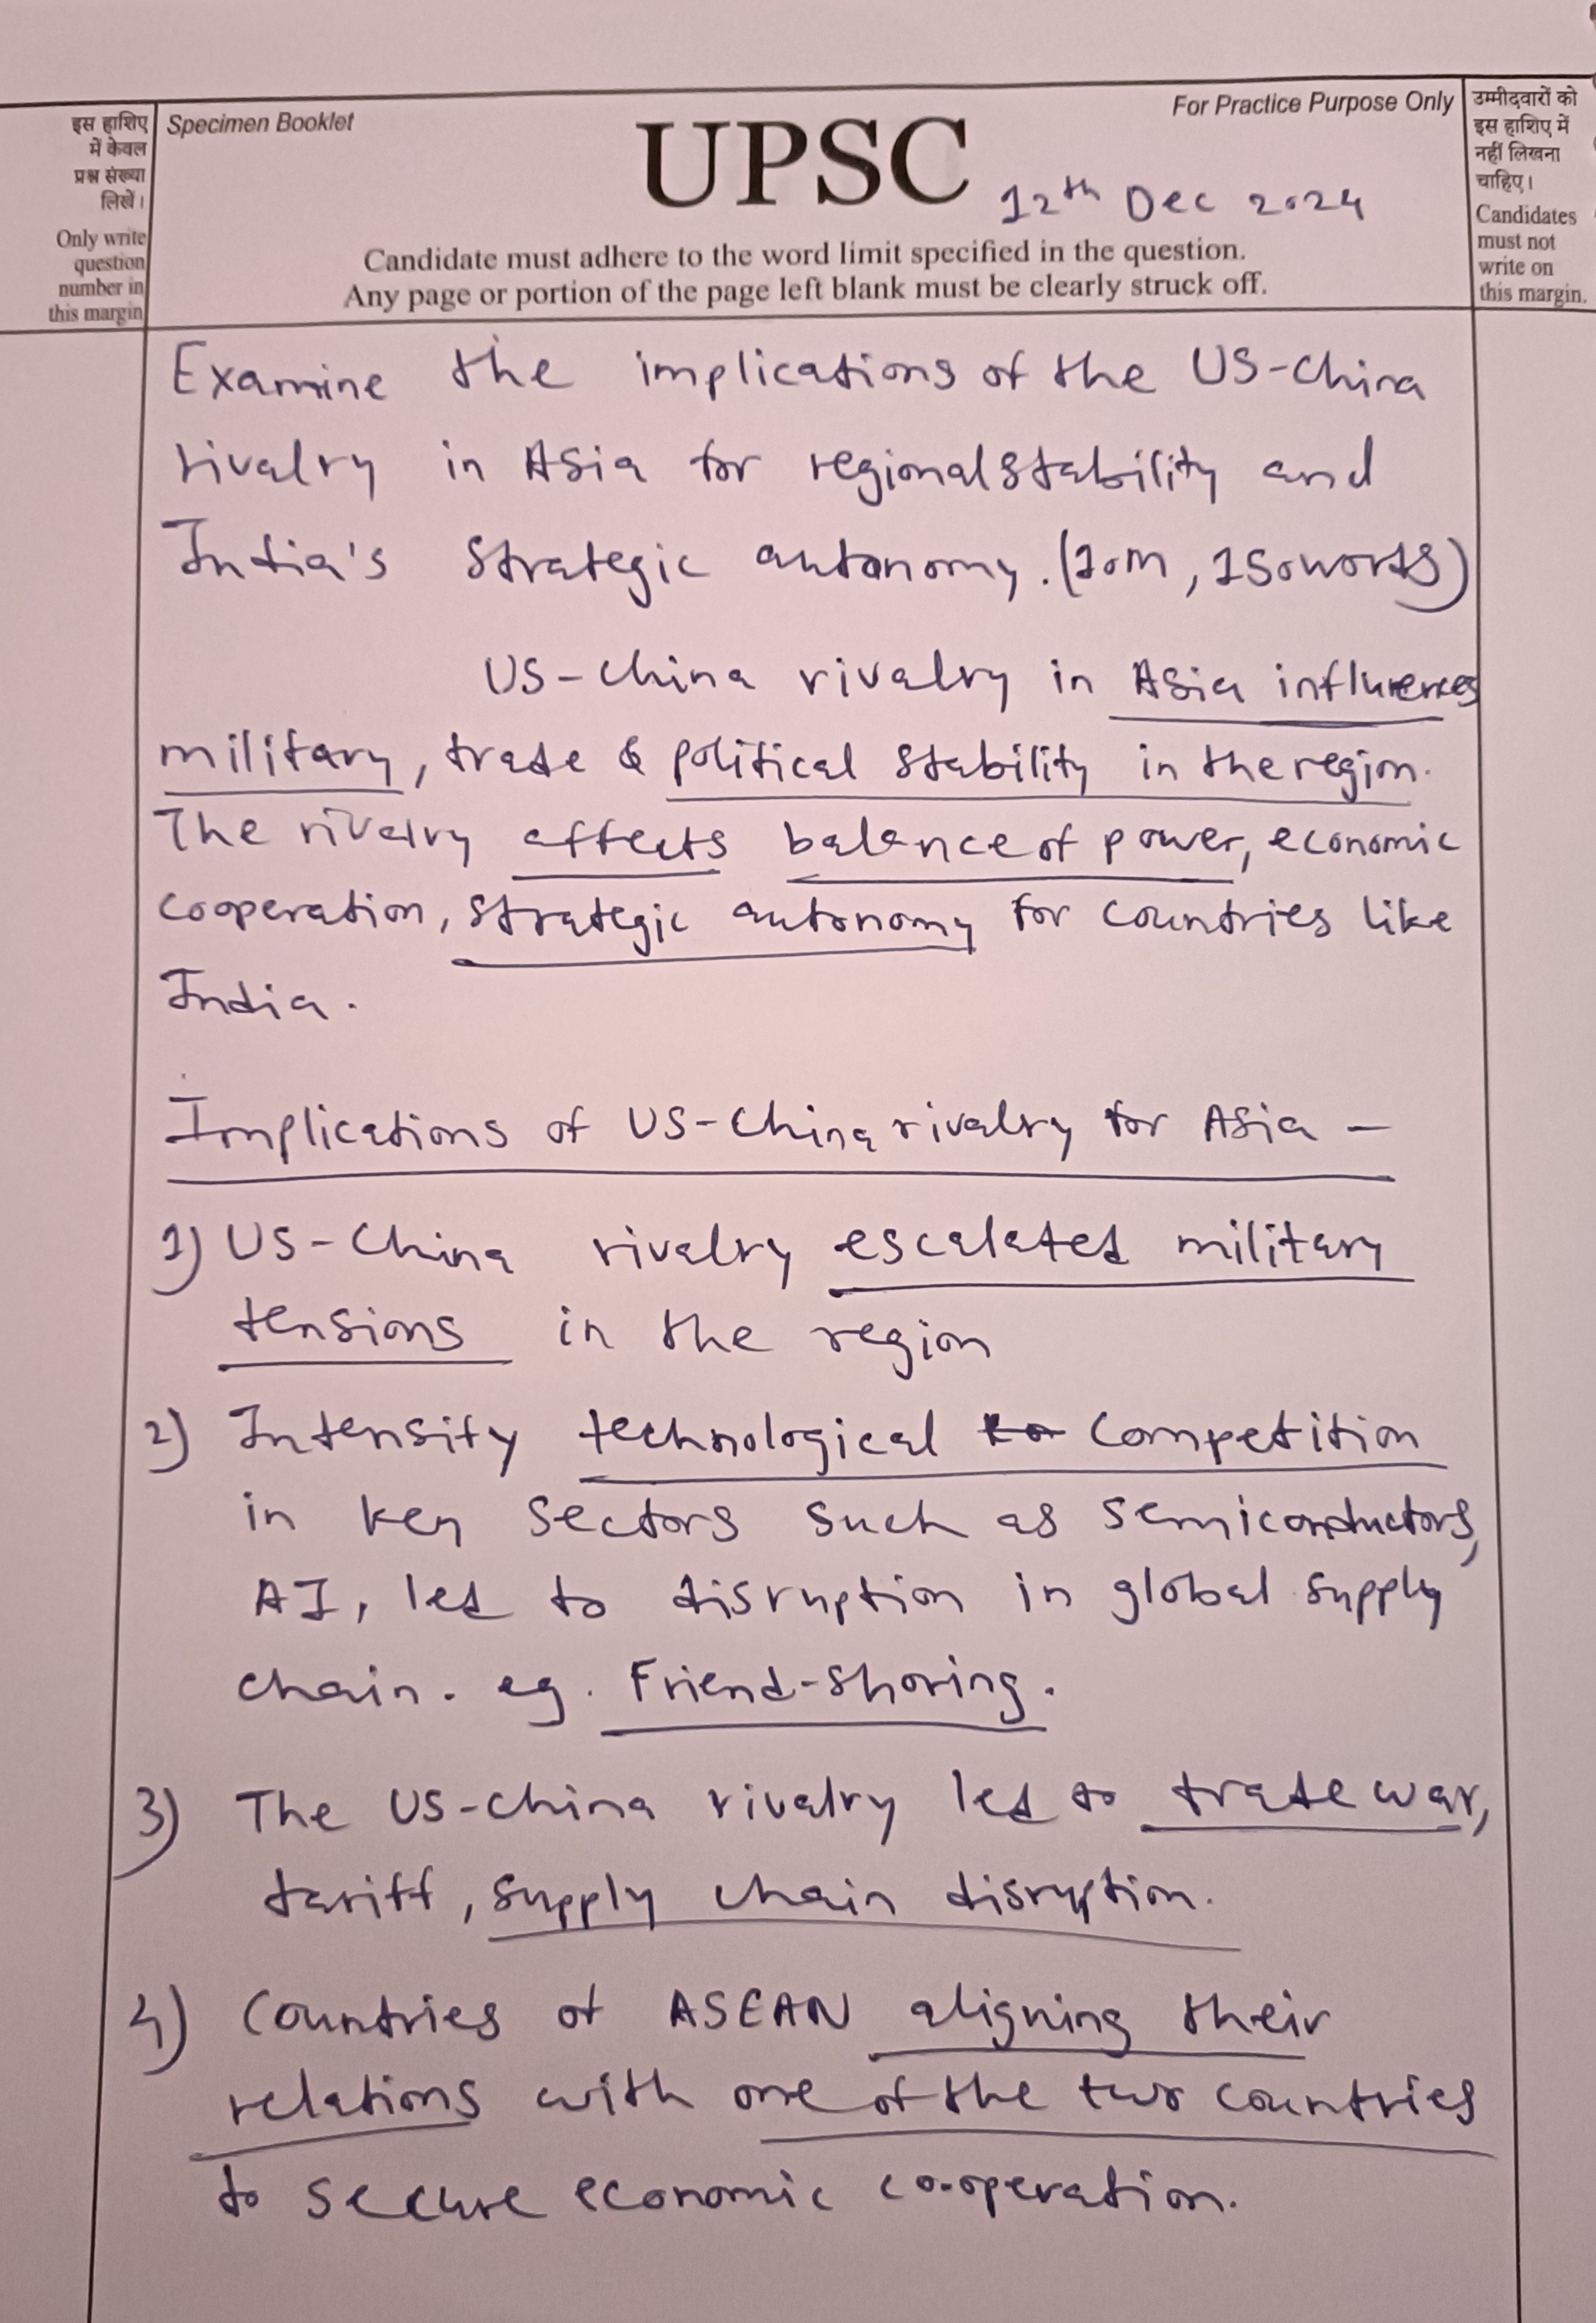 इस हाशिए
में केवल
प्रश्न संख्या
लिखें।
Only write
question
number in
this margin
Specimen Booklet
For Practice Purpose Only
UPSC
12th Dec 2024
Candidate must adhere to the word limit specified in the question.
Any page or portion of the page left blank must be clearly struck off.
उम्मीदवारों को
इस हाशिए में
नहीं लिखना
चाहिए।
Candidates
must not
write on
this margin.
Examine the implications of the US-China
rivalry in Asia for regional stability and
India's strategic autonomy. (10m, 150words)
US-China rivalry in Asia influences
military, trade & political stability in the region.
The rivalry affects balance of power, economic
cooperation, strategic autonomy for countries like
India.
Implications of US-China rivalry for Asia -
1) US-China rivalry escalated military
tensions in the region
2) Intensity technological competition
in key sectors such as semiconductors,
AI, led to disruption in global supply
chain. eg. Friend-shoring.
3) The US-China rivalry led to trade war,
tariff, supply chain disruption.
4) Countries of ASEAN aligning their
relations with one of the two countries
to secure economic co-operation.